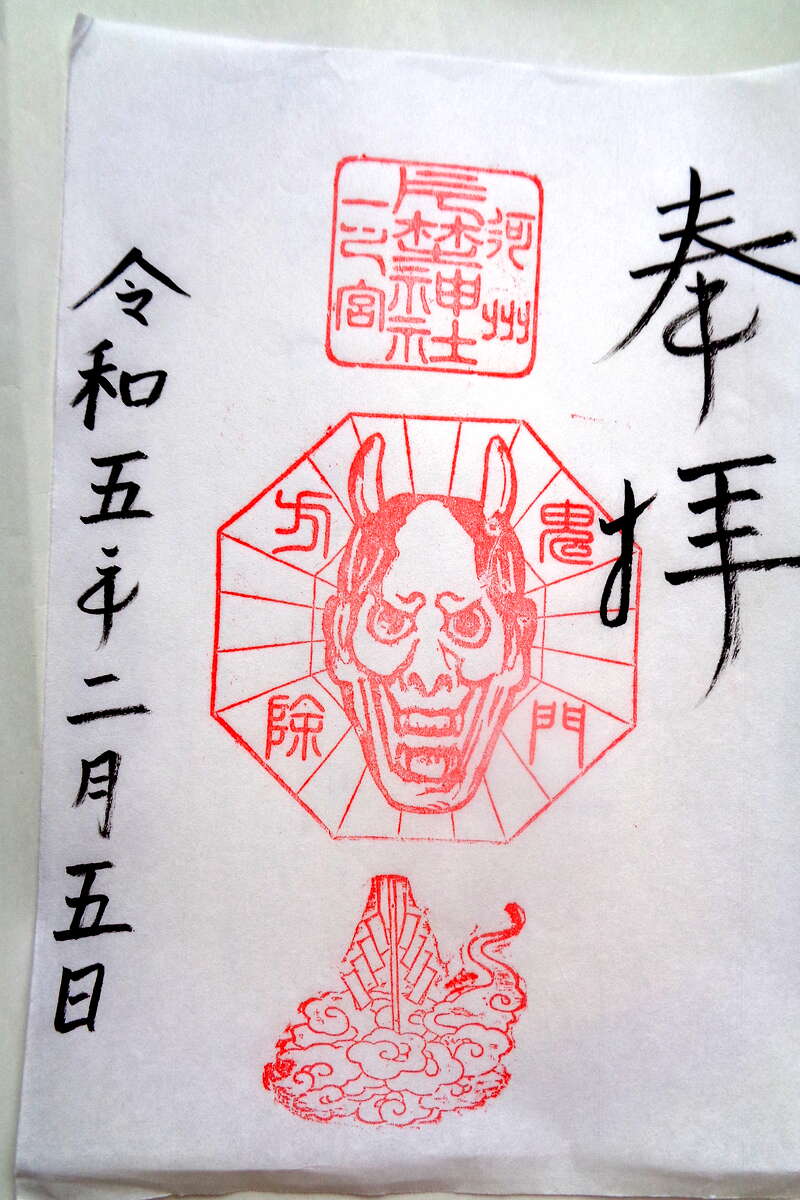 奉拝
河州
片埜神社
一之宮
鬼門
方除
令和五年二月五日